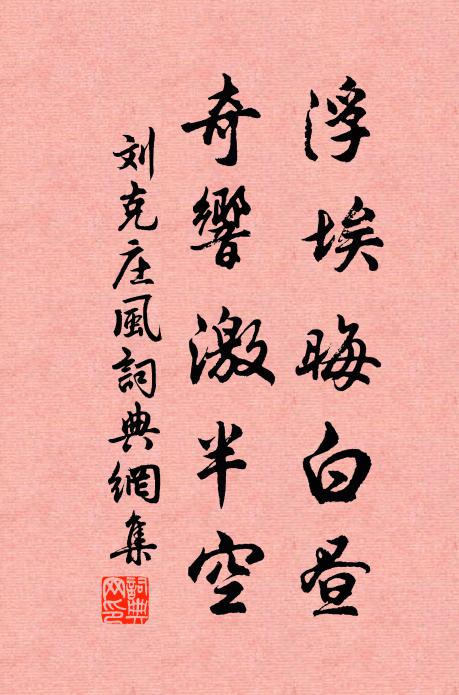 浮埃晦白昼
奇響激半空
刘克庄風詞典網集
詞典网印